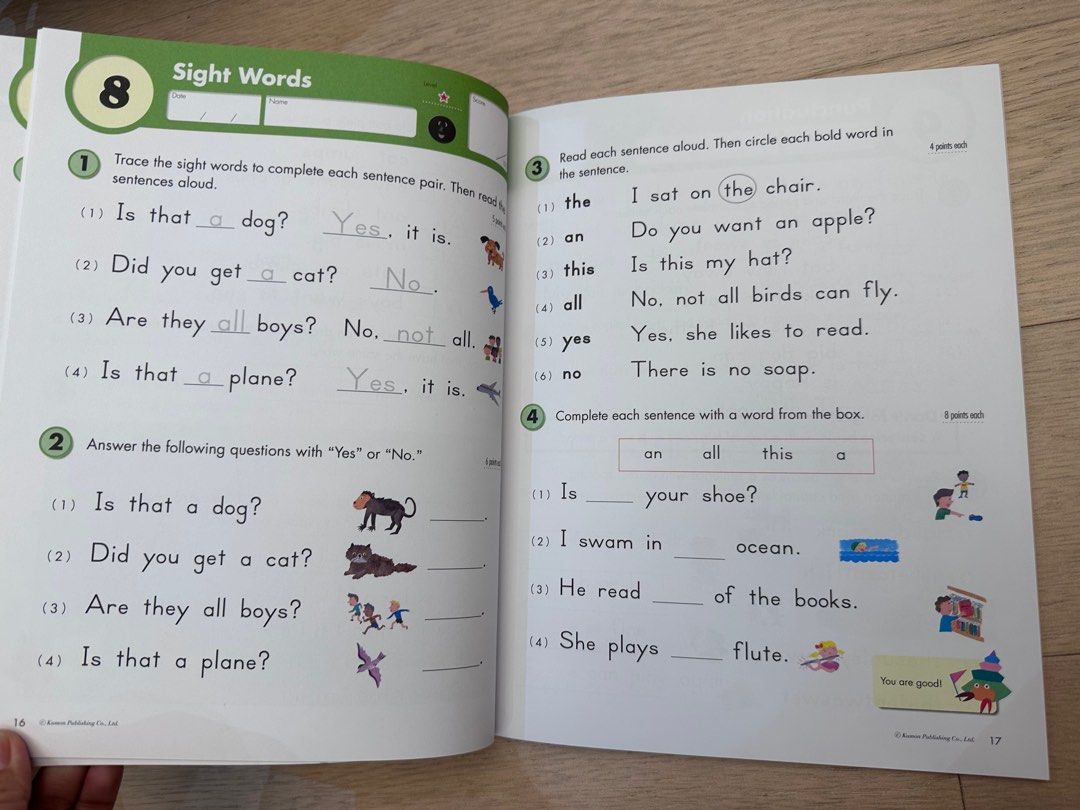 8
Sight Words
Level
Date
/ /
Name
Score
1
Trace the sight words to complete each sentence pair. Then read the
sentences aloud.
(1) Is that a dog? Yes, it is.
(2) Did you get a cat? No.
(3) Are they all boys? No, not all.
(4) Is that a plane? Yes, it is.
2
Answer the following questions with “Yes” or “No.”
(1) Is that a dog? ______.
(2) Did you get a cat? ______.
(3) Are they all boys? ______.
(4) Is that a plane? ______.
16
© Kumon Publishing Co., Ltd.
3
Read each sentence aloud. Then circle each bold word in
the sentence.
4 points each
(1) the I sat on the chair.
(2) an Do you want an apple?
(3) this Is this my hat?
(4) all No, not all birds can fly.
(5) yes Yes, she likes to read.
(6) no There is no soap.
4
Complete each sentence with a word from the box.
8 points each
an all this a
(1) Is ____ your shoe?
(2) I swam in ____ ocean.
(3) He read ____ of the books.
(4) She plays ____ flute.
You are good!
© Kumon Publishing Co., Ltd.
17